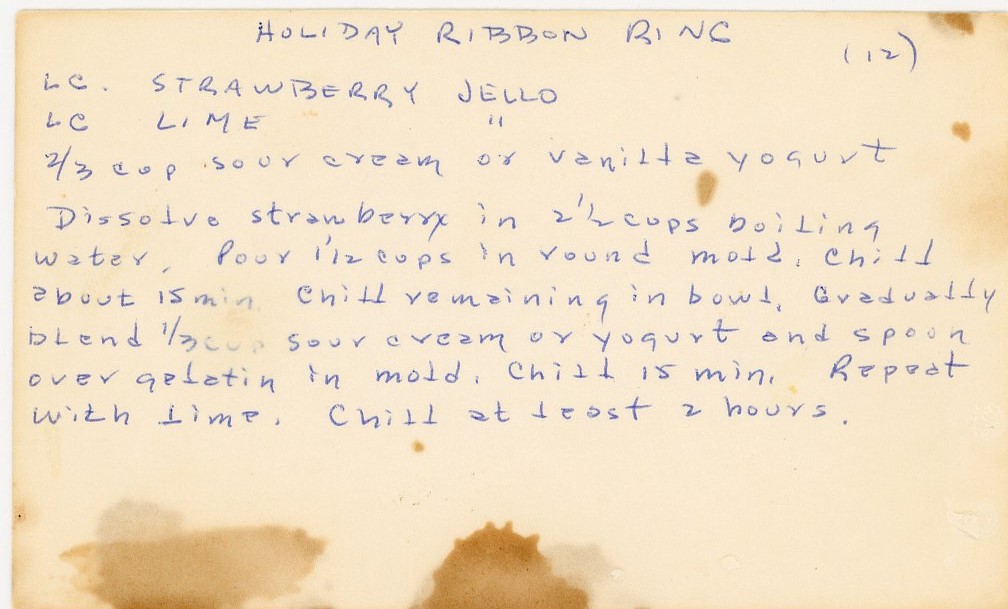 HOLIDAY RIBBON RING
(12)
LG. STRAWBERRY JELLO
LG LIME "
2/3 cup sour cream or vanilla yogurt
Dissolve strawberry in 2 1/2 cups boiling
water. Pour 1 1/2 cups in round mold. Chill
about 15 min. Chill remaining in bowl. Gradually
blend 1/3 cup sour cream or yogurt and spoon
over gelatin in mold. Chill 15 min. Repeat
with lime. Chill at least 2 hours.